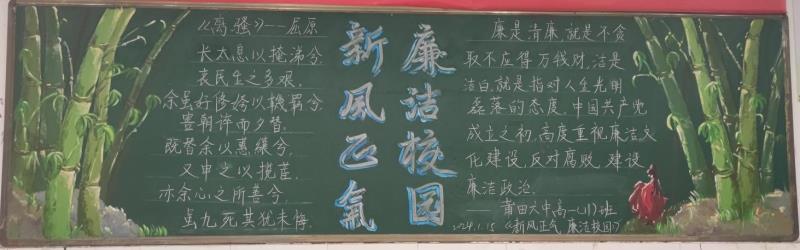 《离骚》--屈原
长太息以掩涕兮
哀民生之多艰.
余虽好修姱以鞿羁兮
謇朝谇而夕替.
既替余以蕙纕兮
又申之以揽茝.
亦余心之所善兮
虽九死其犹未悔.
新风正氣
廉洁校园
廉是清廉,就是不贪
取不应得万钱财,洁是
洁白,就是指对人生光明
磊落的态度.中国共产党
成立之初,高度重视廉洁文
化建设,反对腐败,建设
廉洁政治.
——莆田六中高一(11)班
2024.1.15 《新风正气,廉洁校园》